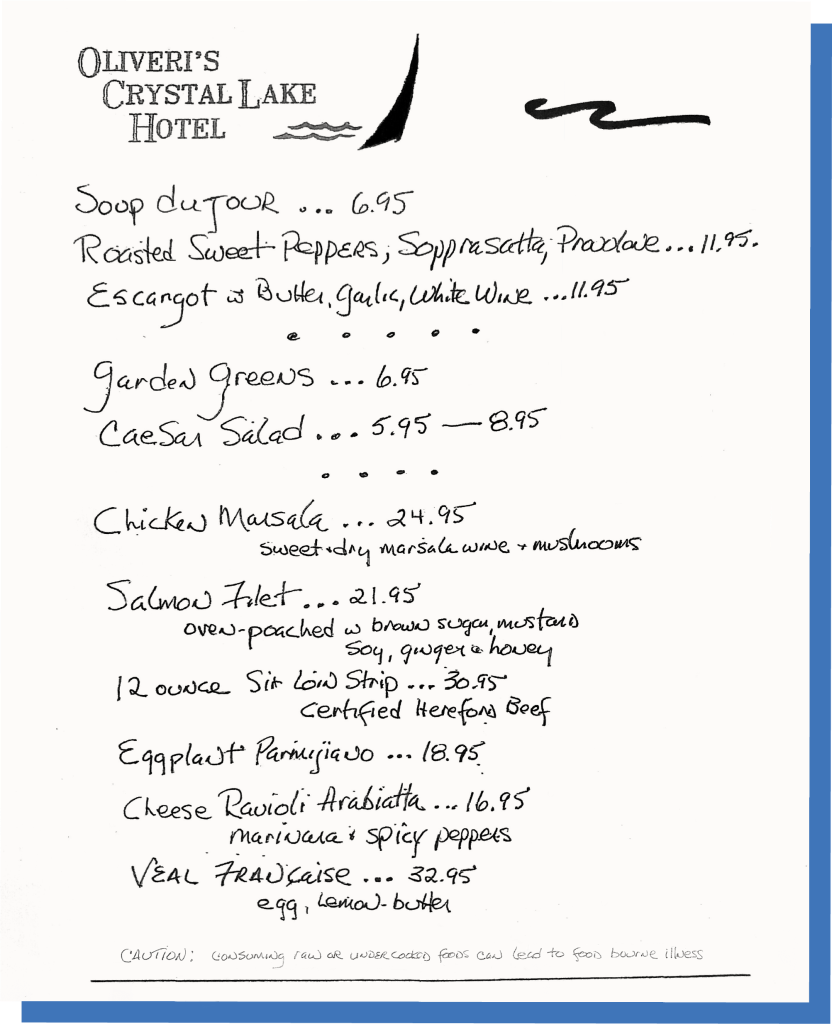 OLIVERI'S
CRYSTAL LAKE
HOTEL
Soup du JOUR ... 6.95
Roasted Sweet Peppers, Sopprasatta, Provolove ... 11.95.
Escargot w Butter, Garlic, White Wine ... 11.95
. . . . .
Garden Greens ... 6.95
Caesar Salad ... 5.95 — 8.95
. . . .
Chicken Marsala ... 24.95
sweet + dry marsala wine + mushrooms
Salmon Filet ... 21.95
oven-poached w brown sugar, mustard
soy, ginger & honey
12 ounce Sir Loin Strip ... 30.95
Certified Hereford Beef
Eggplant Parmigiano ... 18.95
Cheese Ravioli Arabiatta ... 16.95
marinara + spicy peppers
VEAL FRANCaise ... 32.95
egg, Lemon-butter
CAUTION: CONSUMING raw OR UNDERCOOKED foods can lead to food bourne illness